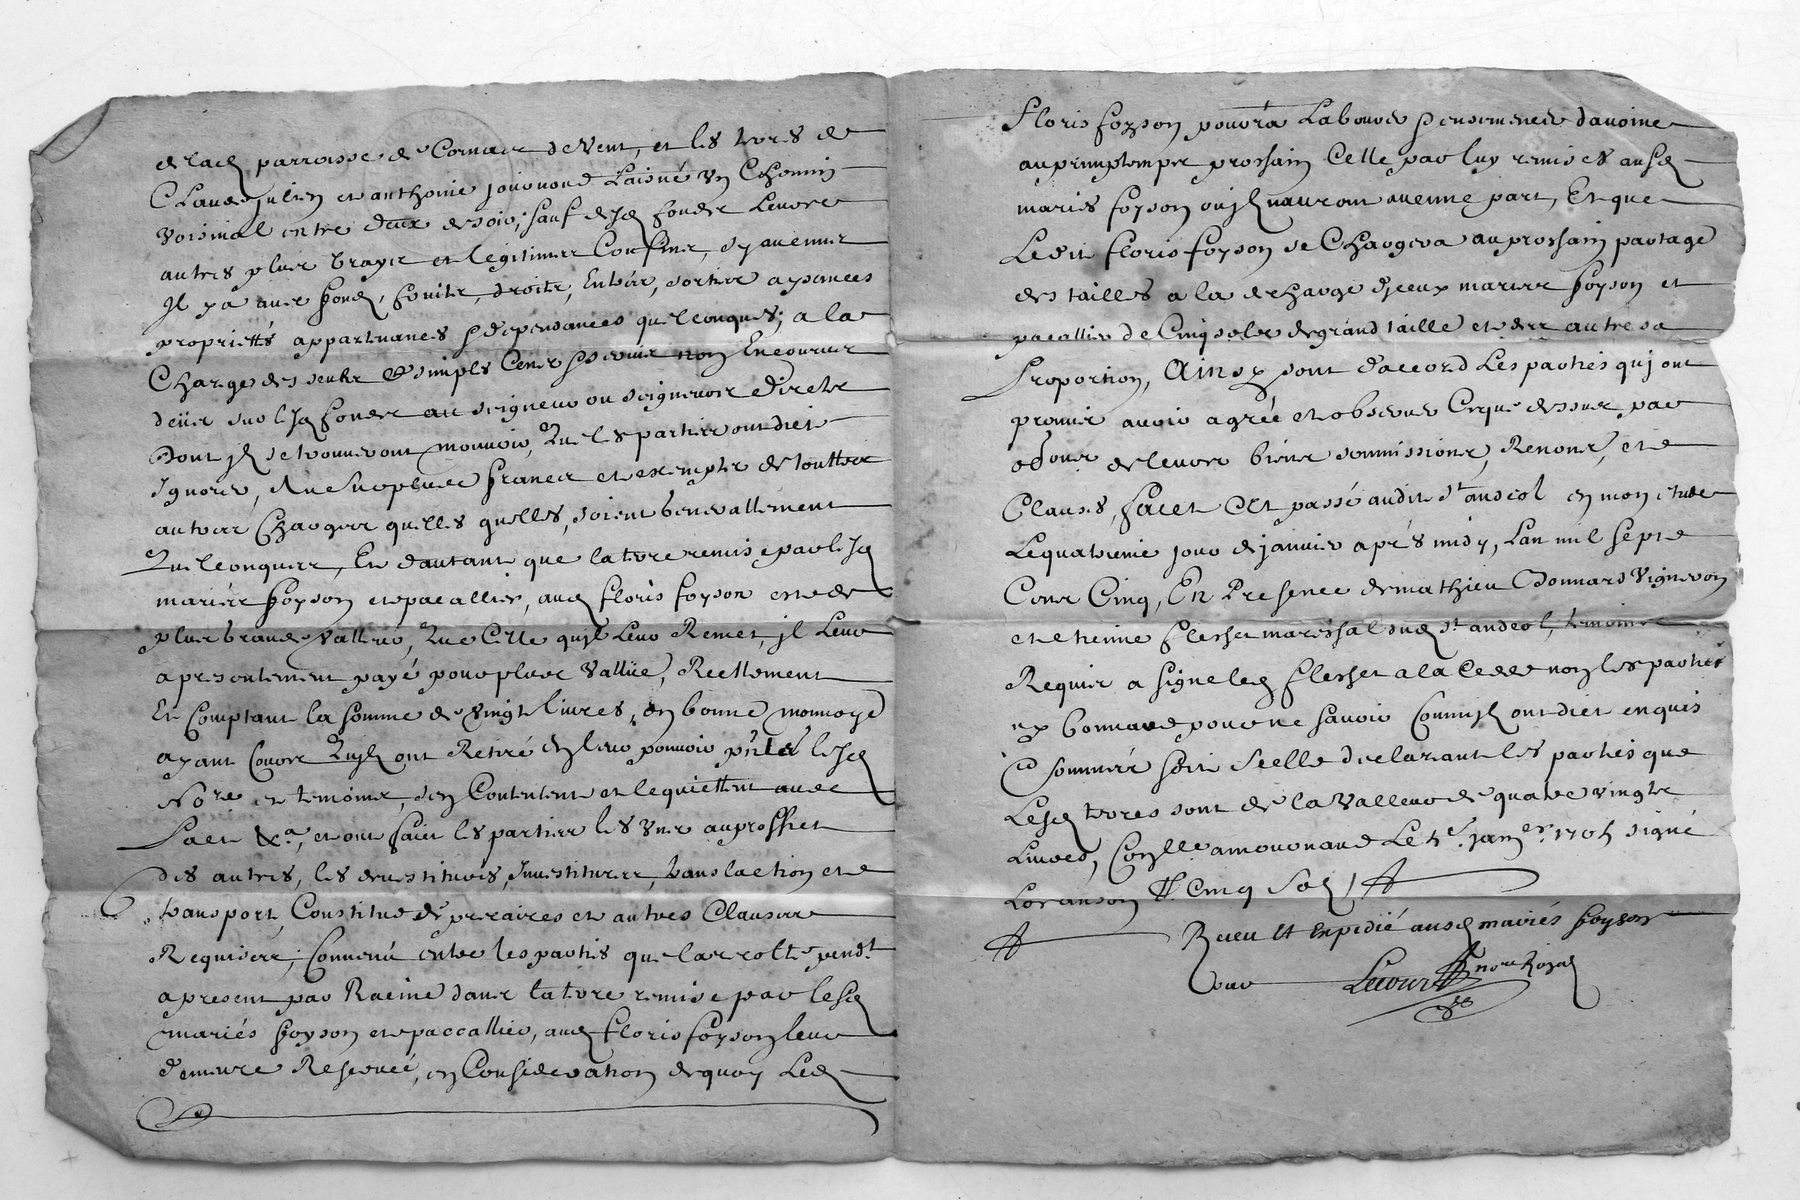 de lad parroisse de Cornas de Vent, et les terres de
Claude Julien et anthoine jouvond Laisné un Chemin
Voisinal entre deux de soir, sauf desd fonds Leurs
autres plus vrays et legitimes Confins, sy aucuns
Il y a avec fonds, fruits, droits, Entrés, sorties aysances
propriettés appartenances & dependances quelconques, a la
Charge des seuls & simples Cens & servis non Encourus
deüs sur lesd fonds au seigneur ou seigneurs directs
Dont jls se trouveront mouvoir, Que les parties ont diet
Ignorer, du surplus francs et exempts de touttes
autres Charges quelles quelles soient generallement
Quelconques, Et dautant que la terre remise par lesd
mariés foyson et pacallier, aud floris foyson est de
plus grande valleur, Que Celle quil Leur Remet, jl Leur
a presentement payé pour plus vallüe, Reellement
Et Comptant la somme de vingt livres, en bonne monnoye
ayant Cours Quils ont Retiré en leur pouvoir p lesd
No.re et temoins, sen Contentent et le quittent avec
pact &.a, et ont faict les parties les uns au proffict
des autres, les devestitures, Investitures, translaction et
transport, Constitue de precaires et autres Clauses
Requises; Convenû entre les parties que la recolte pend.t
a present par Racine dans la terre remise par lesd
mariés foyson et paccallier, aud floris foyson leur
demeure Reservée, en Consideration de quoy Led
floris foyson pourra Labourer & ensemencer davoine
au printemps prochain Celle par luy remise ausd
mariés foyson ou jls nauront aucune part, Et que
Ledit floris foyson se Chargera au prochain partage
des tailles a la decharge d'jceux mariés foyson et
pacallier de Cinq sols de grand taille et des autres a
proportion, Ainsy sont d'accord Les parties qui ont
promis avoir agrée et observer Ce que dessus, par
de leurs biens soumissions, Renon.s, et
Clauses, faict Et passé audit S.t andeol en mon etude
Le quatrieme jour de janvier aprés midy, Lan mil sept
Cens Cinq, En Presence de mathieu Bonnard Vigneron
et etienne flechet mareschal dud S.t andeol, temoins
Requis a signe led flechet a la Cede non les parties
ny bonnard pour ne savoir Comme jls ont diet enquis
Et sommés soit seelle declarant les parties que
Lesd terres sont de la Valleur de quatre vingt
Livres, Con.llé a mornand Le 5e janer 1705 signé
Loranson ## Cinq sols
Receu Et Expedié ausd mariés foyson
no.re Royal